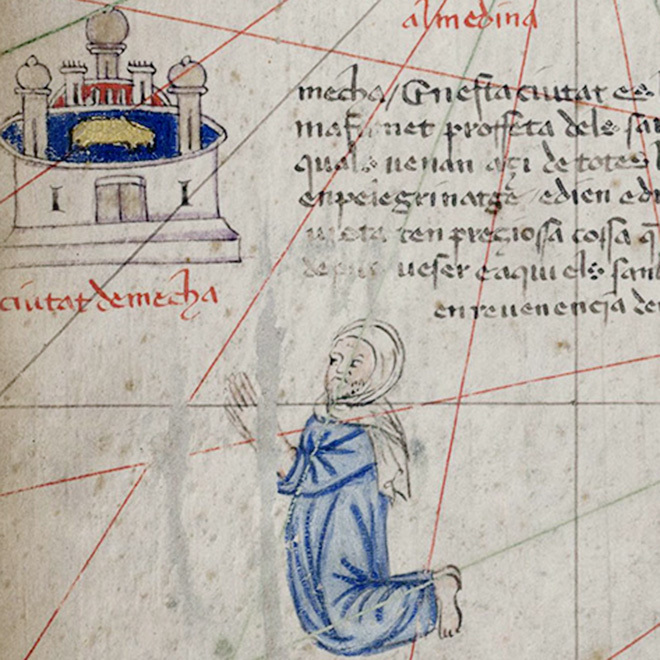 almedina
mecha / Gnesta ciutat es
mafumet proffeta dels sar
quals uenan açi de totes
en peiegrinatge e dien e di
ten preçiossa cossa q̄
ueser e aqui els
en reuerencia de
ciutat de mecha